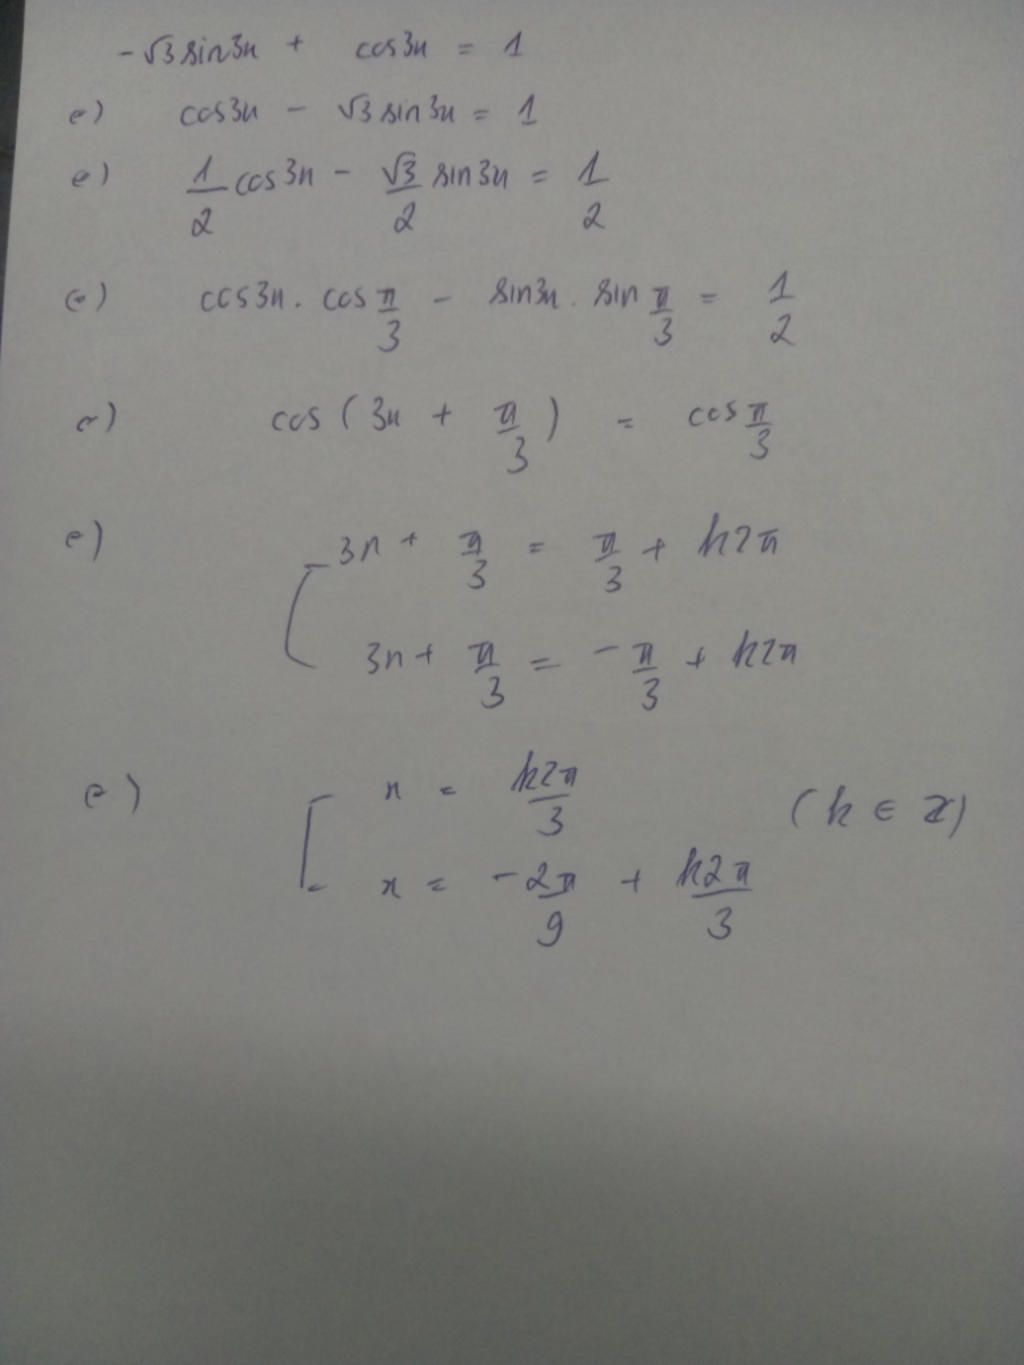 -√3 sin3x + cos3x = 1
⇔) cos3x - √3 sin3x = 1
⇔) 1/2 cos3x - √3/2 sin3x = 1/2
⇔) cos3x . cos π/3 - sin3x . sin π/3 = 1/2
⇔) cos(3x + π/3) = cos π/3
⇔) [ 3x + π/3 = π/3 + k2π
3x + π/3 = -π/3 + k2π
⇔) [ x = k2π/3 (k ∈ Z)
x = -2π/9 + k2π/3